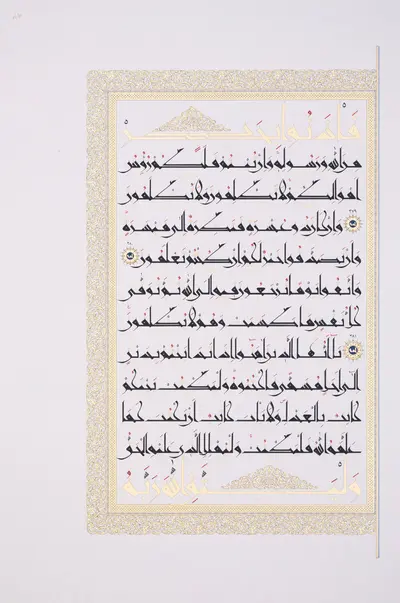 فأذنوا بحرب
من الله ورسوله وإن تبتم فلكم رءوس
أموالكم لا تظلمون ولا تظلمون
وإن كان ذو عسرة فنظرة إلى ميسرة
وأن تصدقوا خير لكم إن كنتم تعلمون
واتقوا يوما ترجعون فيه إلى الله ثم توفى
كل نفس ما كسبت وهم لا يظلمون
يأيها الذين ءامنوا إذا تداينتم بدين
إلى أجل مسمى فاكتبوه وليكتب بينكم
كاتب بالعدل ولا يأب كاتب أن يكتب كما
علمه الله فليكتب وليملل الذي عليه الحق
وليتق الله ربه